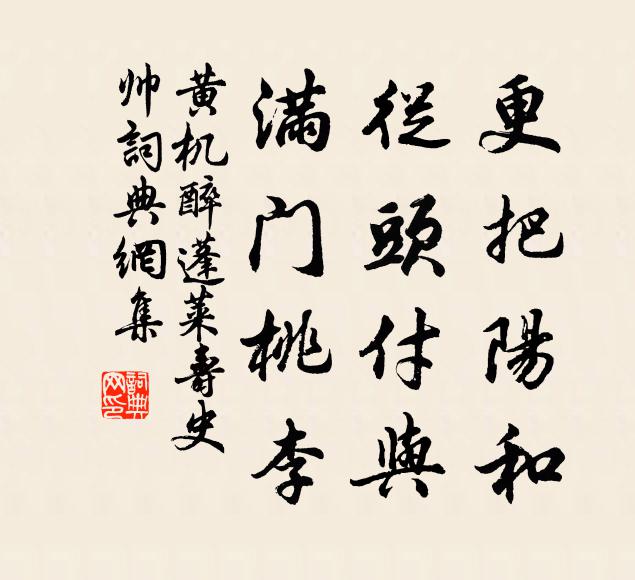 更把陽和
從頭付與
滿門桃李
黄机醉蓬莱壽史
帅詞典網集
詞典
网印